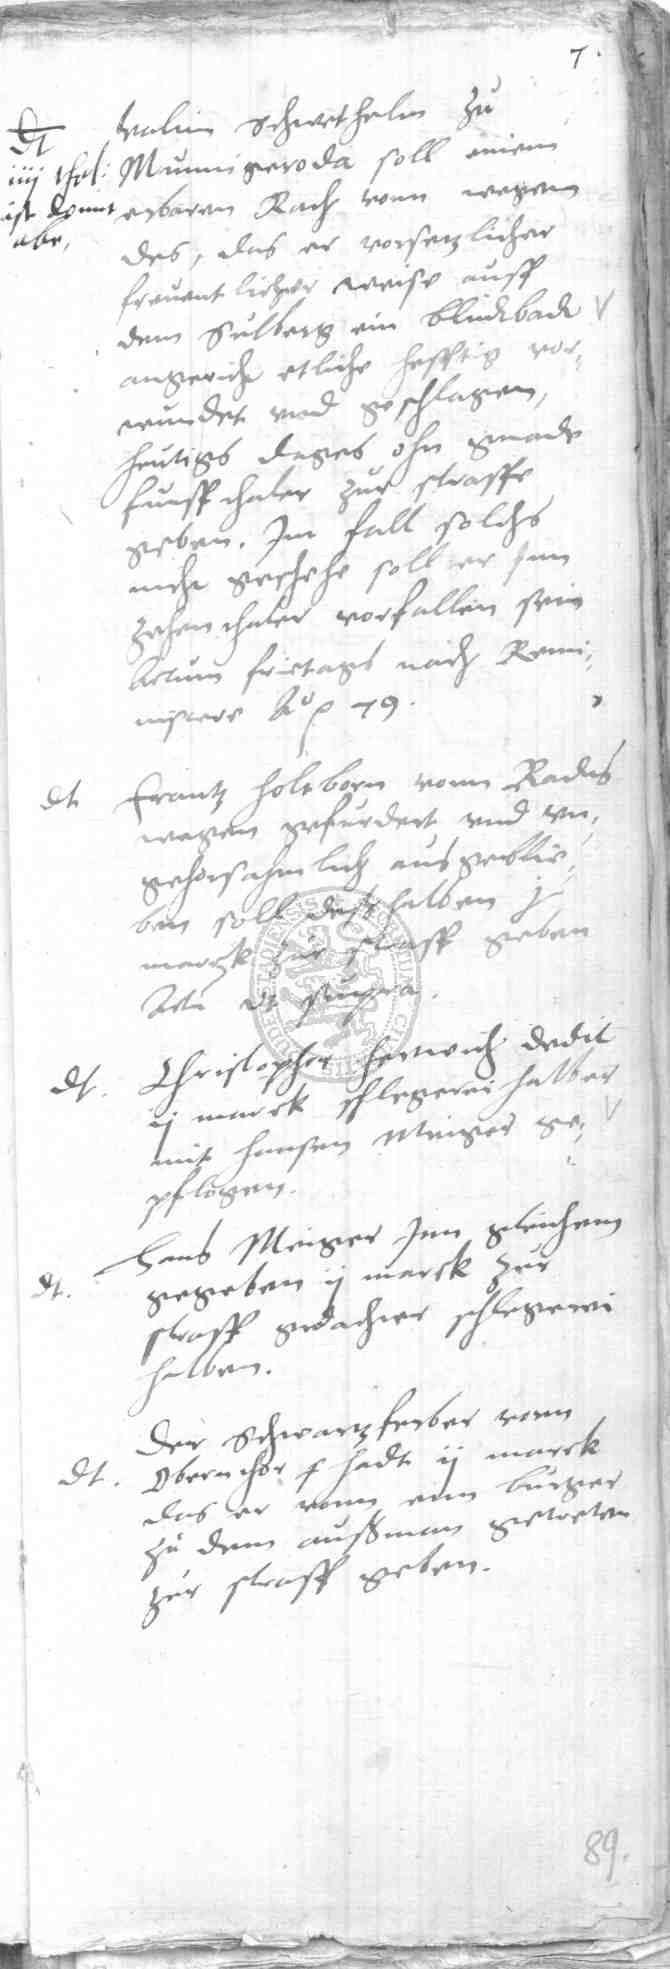 7.
dt
iiij thal:
ist domit
abe,
Valtin Schwethelm zu
Munnigeroda soll einem
erbaren Rath vonn wegenn
des, das er vorsetzlicher
freuentlicher weise auff
dem Sulberg ein
angericht etliche hefftig vor-
wundet vnd geschlagen,
heutigs dages ohn gnade
funff thaler zur straffe
geben. Im fall solchs
nicht geschehe soll er Inn
zehen thaler vorfallen sein
Actum freitags nach Remi-
niscere 79.
dt Frantz Holtborn vonn Radts
wegen gefurdert vnd vn-
gehorsahmlich ausgeblie-
ben soll deshalben j
marck zur straff geben
Act ut supra.
dt. Christopher Hertwich dedit
ij marck schlegerei halber
mit Hansen Meiger ge-
pflogen.
dt. Hans Meiger Inn gleichem
gegeben ij marck zur
straff gedachter schlegerei
halben.
Der Schwartzferber vorm
dt. Obernthor hadt ij marck
das er vonn eim burger
zu dem außman getreten
zur straff geben.
89.